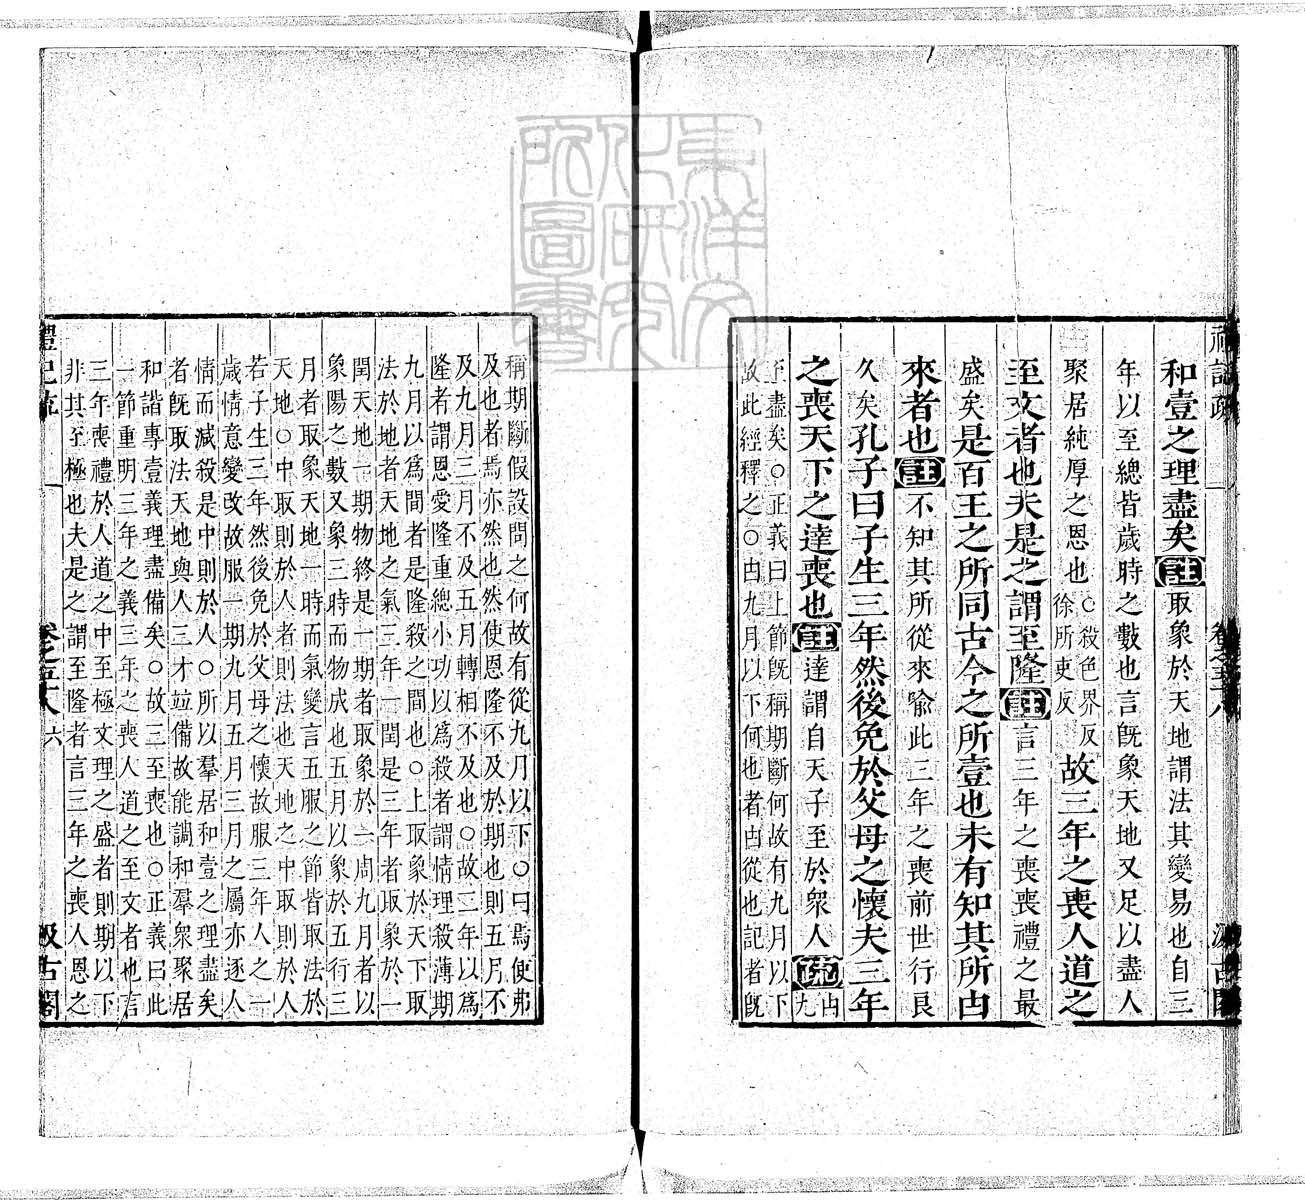 和壹之理盡矣註取象於天地謂法其變易也自三
年以至緦皆歲時之數也言旣象天地又足以盡人
聚居純厚之恩也○殺色界反徐所吏反故三年之喪人道之
至文者也夫是之謂至隆註言三年之喪喪禮之最
盛矣是百王之所同古今之所壹也未有知其所由
來者也註不知其所從來喻此三年之喪前世行艮
久矣孔子曰子生三年然後免於父母之懷夫三年
之喪天下之達喪也註達謂自天子至於衆人疏由九
至盡矣○正義曰上節旣稱期斷何故有九月以下
故此經釋之○由九月以下何也者由從也記者旣
稱期斷假設問之何故有從九月以下○曰焉使弗
及也者焉亦然也然使恩隆不及於期也則五月不
及九月三月不及五月轉相不及也○故三年以爲
隆者謂恩愛隆重緦小功以爲殺者謂情理殺薄期
九月以爲間者是隆殺之間也○上取象於天下取
法於地者天地之氣三年一閏是三年者取象於一
閏天地一期物終是一期者取象於一周九月者以
象陽之數又象三時而物成也五月以象於五行三
月者取象天地一時而氣變言五服之節皆取法於
天地○中取則於人者則法也天地之中取則於人
若子生三年然後免於父母之懷故服三年人之一
歲情意變改故服一期九月五月三月之屬亦逐人
情而減殺是中則於人○所以羣居和壹之理盡矣
者旣取法天地與人三才竝備故能調和羣衆聚居
和諧專壹義理盡備矣○故三至喪也○正義曰此
一節重明三年之義三年之喪人道之至文者也言
三年喪禮於人道之中至極文理之盛者則期以下
非其至極也夫是之謂至隆者言三年之喪人恩之
禮記疏
卷之五十八
六
汲古閣